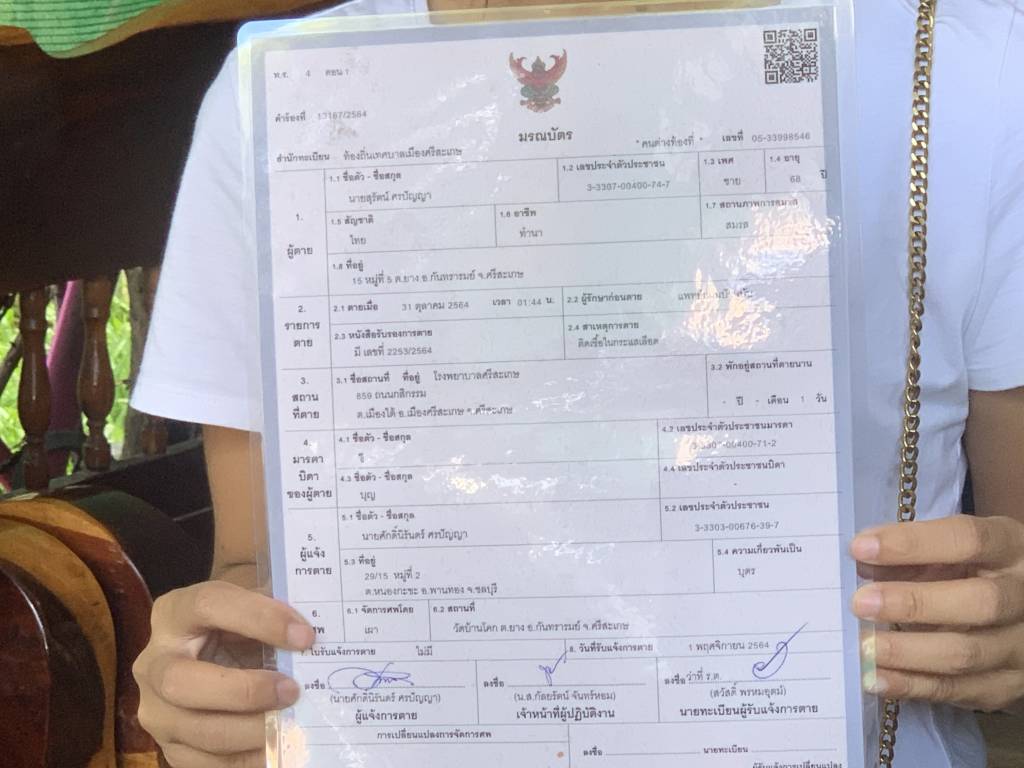 ท.ร. 4 ตอน 1
คำร้องที่ 13187/2564
มรณบัตร
* คนต่างท้องที่ * เลขที่ 05-33998546
สำนักทะเบียน ท้องถิ่นเทศบาลเมืองศรีสะเกษ
1. ผู้ตาย
1.1 ชื่อตัว - ชื่อสกุล
นายสุรัตน์ ศรปัญญา
1.2 เลขประจำตัวประชาชน
3-3307-00400-74-7
1.3 เพศ
ชาย
1.4 อายุ
68 ปี
1.5 สัญชาติ
ไทย
1.6 อาชีพ
ทำนา
1.7 สถานภาพการสมรส
สมรส
1.8 ที่อยู่
15 หมู่ที่ 5 ต.ยาง อ.กันทรารมย์ จ.ศรีสะเกษ
2. รายการตาย
2.1 ตายเมื่อ 31 ตุลาคม 2564 เวลา 01:44 น.
2.2 ผู้รักษาก่อนตาย
2.3 หนังสือรับรองการตาย
มี เลขที่ 2253/2564
2.4 สาเหตุการตาย
ติดเชื้อในกระแสเลือด
3. สถานที่ตาย
3.1 ชื่อสถานที่ ที่อยู่ โรงพยาบาลศรีสะเกษ
859 ถนนกสิกรรม
ต.เมืองใต้ อ.เมืองศรีสะเกษ จ.ศรีสะเกษ
3.2 พักอยู่สถานที่ตายนาน
- ปี - เดือน 1 วัน
4. มารดา บิดา ของผู้ตาย
4.1 ชื่อตัว - ชื่อสกุล
4.2 เลขประจำตัวประชาชนมารดา
00400-71-2
4.3 ชื่อตัว - ชื่อสกุล
บุญ
4.4 เลขประจำตัวประชาชนบิดา
-
5. ผู้แจ้งการตาย
5.1 ชื่อตัว - ชื่อสกุล
นายศักดิ์นิรันดร์ ศรปัญญา
5.2 เลขประจำตัวประชาชน
3-3303-00676-39-7
5.3 ที่อยู่
29/15 หมู่ที่ 2
ต.หนองกะขะ อ.พานทอง จ.ชลบุรี
5.4 ความเกี่ยวพันเป็น
บุตร
6.
6.1 จัดการศพโดย
เผา
6.2 สถานที่
วัดบ้านโคก ต.ยาง อ.กันทรารมย์ จ.ศรีสะเกษ
7. ใบรับแจ้งการตาย ไม่มี
8. วันที่รับแจ้งการตาย 1 พฤศจิกายน 2564
ลงชื่อ
(นายศักดิ์นิรันดร์ ศรปัญญา)
ผู้แจ้งการตาย
ลงชื่อ
(น.ส.กัลยรัตน์ จันทร์หอม)
เจ้าหน้าที่ผู้ปฏิบัติงาน
ลงชื่อ ว่าที่ ร.ต.
(สวัสดิ์ พรหมอุตม์)
นายทะเบียนผู้รับแจ้งการตาย
การเปลี่ยนแปลงการจัดการศพ
ลงชื่อ นายทะเบียน
ผู้รับแจ้งการเปลี่ยนแปลง